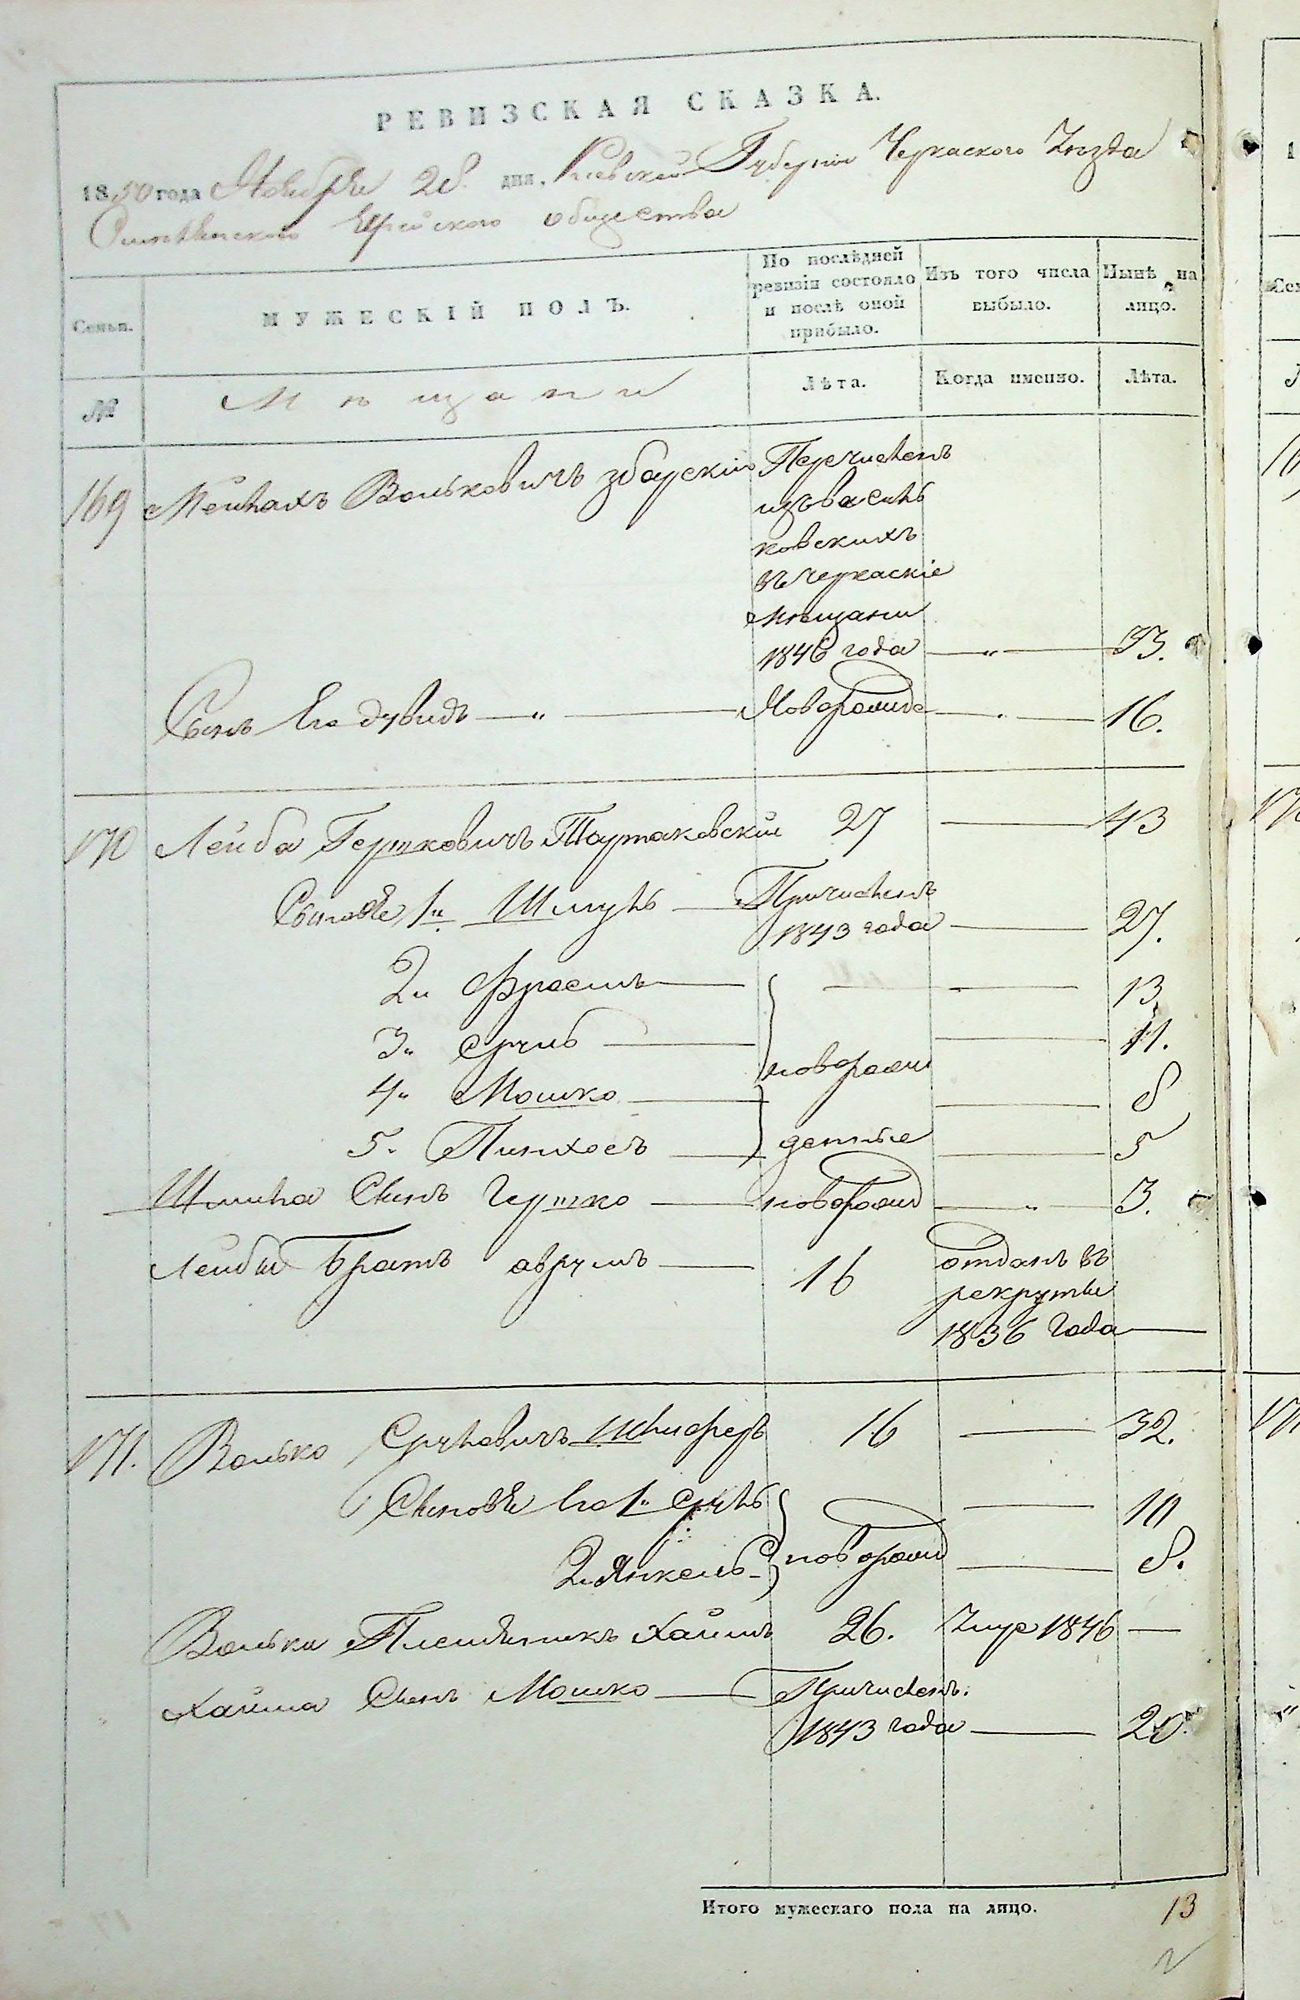 РЕВИЗСКАЯ СКАЗКА.
1850 года Ноября 28. дня, Киевской Губернiи Черкаского Уезда
Еврейского общества
Семьи.
МУЖЕСКIЙ ПОЛЪ.
По послѣдней ревизiи состояло и послѣ оной прибыло.
Изъ того числа выбыло.
Нынѣ на лицо.
№
Мѣщани
Лѣта.
Когда именно.
Лѣта.
169 Мейлахъ Вольковичъ Збарскiй Перечисленъ
изъ Василь
ковскихъ
въ черкаскiе
мѣщани
1846 года — " — 33.
Сынъ Его Дувидъ — " — Новорожд — 16.
170 Лейба Гершковичъ Тартаковскiй 27 — 43
Сыновѣе 1й Шмуль — Причисленъ
1843 года — 27.
2й Фроимъ — 13.
3й Сруль — новорож — 11.
4й Мошко — 8
5й Пинхосъ — денные — 5
Шмиля Сынъ Гершко — новорожд — " — 3.
Лейбы Братъ Аврумъ — 16 отданъ въ
рекруты
1836 года —
171. Волько Срулевичъ 16 — 32.
Сыновѣе Его 1й Сруль — 10
2й Янкель — новорожд — 8.
Волька Племѣникъ Хаимъ 26. Умре 1846 —
Хаима Сынъ Мошко — Причисленъ.
1843 года — 20.
Итого мужескаго пола на лицо. 13